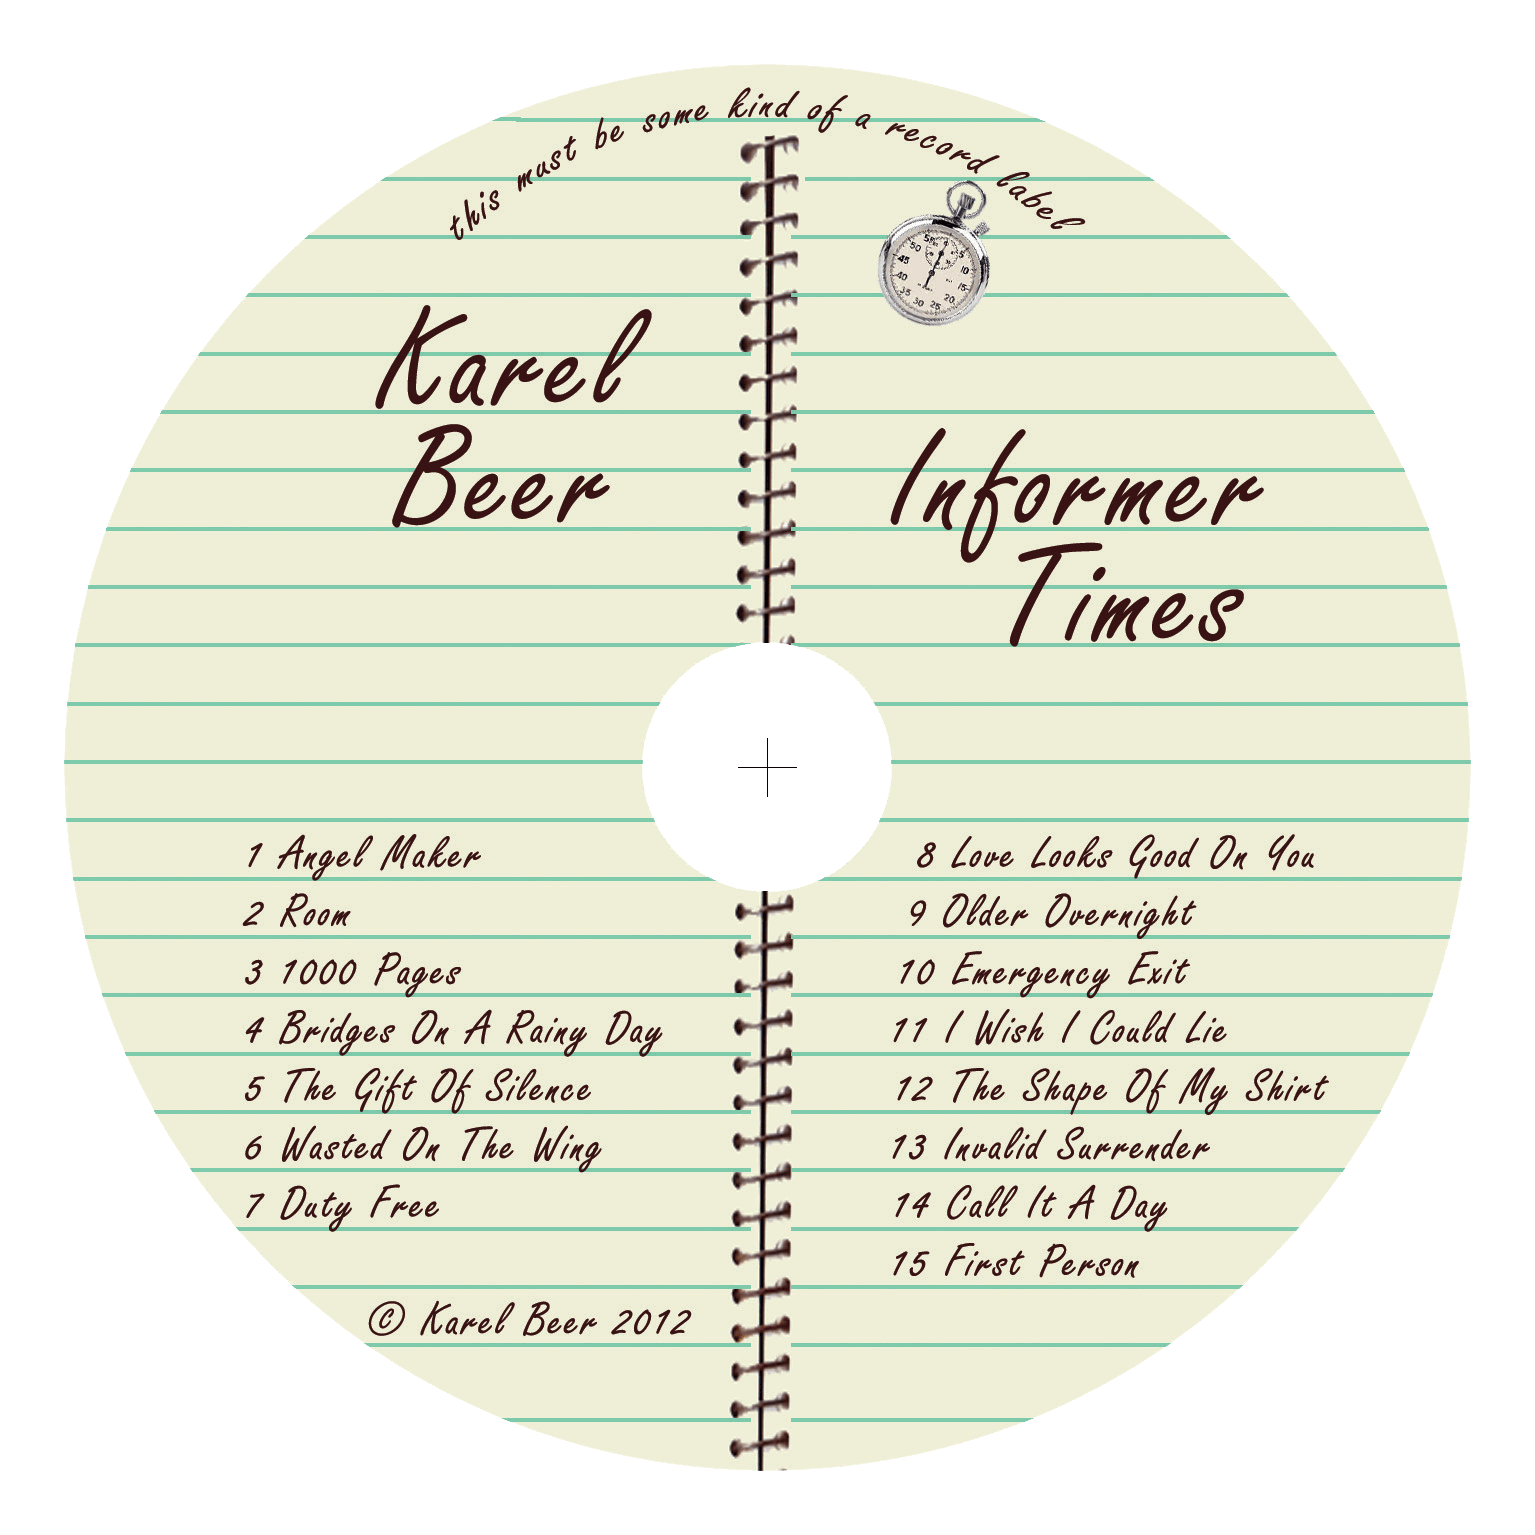 this must be some kind of a record label
Karel
Beer
Informer
Times
1 Angel Maker
2 Room
3 1000 Pages
4 Bridges On A Rainy Day
5 The Gift Of Silence
6 Wasted On The Wing
7 Duty Free
© Karel Beer 2012
8 Love Looks Good On You
9 Older Overnight
10 Emergency Exit
11 I Wish I Could Lie
12 The Shape Of My Shirt
13 Invalid Surrender
14 Call It A Day
15 First Person